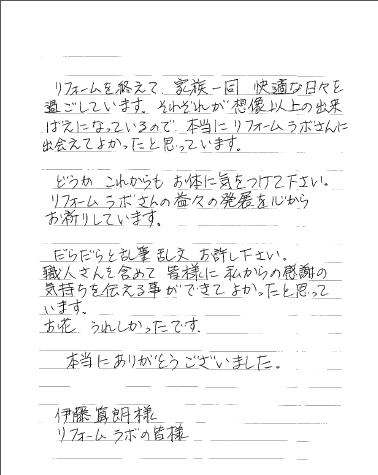 リフォームを終えて、家族一同 快適な日々を
過ごしています。それぞれが想像以上の出来
ばえになっているので、本当にリフォームラボさんに
出会えてよかったと思っています。
どうか これからも お体に気をつけて下さい。
リフォームラボさんの益々の発展を心から
お祈りしています。
だらだらと乱筆乱文 お許し下さい。
職人さんを含めて 皆様に 私からの感謝の
気持ちを伝える事ができて よかったと思って
います。
お花 うれしかったです。
本当にありがとうございました。
伊藤真朗様
リフォームラボの皆様